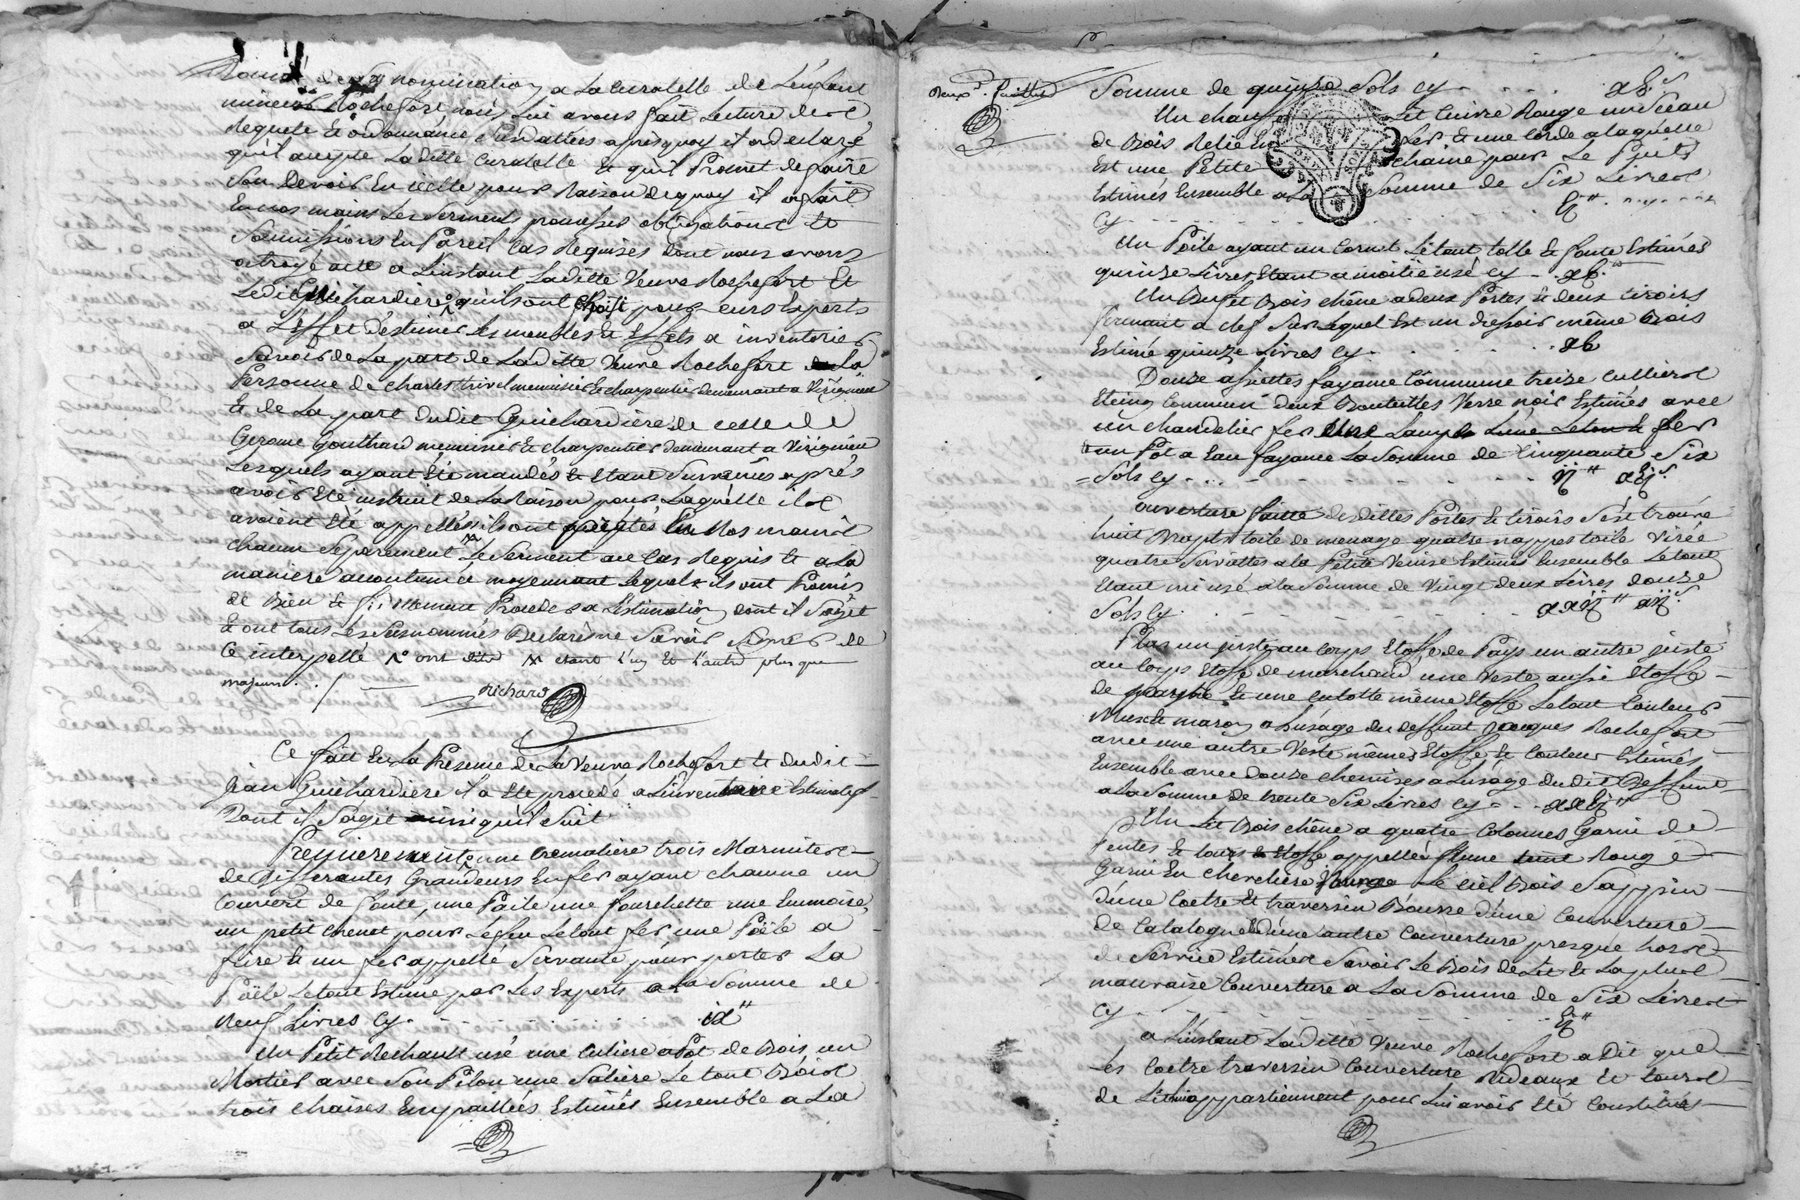 nomination a la curatelle de l'enfant
mineur Rochefort nous lui avons fait Lecture des
Requete & ordonnance susdattées apres quoy il a declaré
qu'il accepte Laditte curatelle & qu'il Promet de faire
son devoir En icelle pour Raison de quoy il a fait
En nos mains Les serments promesses obligations &
soumissions En Pareil Cas Requises dont nous avons
octroyé acte a L'instant Laditte Veuve Rochefort Et
Ledit Guichardiere qu'ils ont choisi pour leurs Experts
a L'effet d'estimer les meubles & Effets a inventorier
savoir de La part de Laditte Veuve Rochefort La
Personne de charles menuisier & charpentier demeurant a Virigneux
& de La part dudit Guichardiere de celle de
Gerome Gouthard menuisier & charpentier demeurant a Virigneux
Lesquels ayant Eté mandés & Etant survenus apres
avoir Eté instruit de La Raison pour Laquelle ils
avoient Eté appellés ils ont preté En Nos mains
chacun separement Le serment au Cas Requis & a La
maniere accoutumée moyennant Lequel ils ont Promis
de Bien & fidellement Proceder a L'estimation dont il s'agit
& ont tous Les susnommés Declaré ne savoir signer de
Ce interpellé ont dits etant l'un Et l'autre plus que
majeurs
Richard
Ce fait En La Presence de La Veuve Rochefort & dudit
Jean Guichardiere il a Eté procedé a L'inventaire Estimatif
Dont il s'agit ainsi qu'il suit
Premierement une cremaliere trois Marmites
de differantes Grandeurs En fer ayant chacune un
Couvert de fonte, une Paile une fourchette une
un petit chenet pour Le feu Le tout fer une Poële a
frire & un fer appellé servante pour porter La
Poële Le tout Estimé par Les Experts a La Somme de
Neuf Livres Cy . . . ix#
Un Petit Rechault usé une Culiere a Pot de Bois un
Mortier avec Son Pilon une Saliere Le tout Bois
trois chaises Empaillées Estimés Ensemble a La
Deuxe. feuillet
Somme de quinze Sols Cy . . . xv s
Un et Cuivre Rouge un Seau
de Bois Relié En fer & une Corde a laquelle
Est une Petite chaine pour Le Puits
Estimés Ensemble a La Somme de Six Livres
Cy . . . vj#
Un Poële ayant un Cornet Le tout tolle & fonte Estimés
quinze Livres Etant a moitié usé Cy . . . xv#
Un Buffet Bois chêne a deux Portes & deux tiroirs
fermant a clef Sur Lequel Est un dressoir même Bois
Estimé quinze Livres Cy . . . xv
Douze assiettes fayance Commune treize Cuilliers
Etaing Commun deux Bouteilles Verre noir Estimés avec
un chandelier fer
un Pot a Eau fayance La Somme de Cinquante Six
Sols Cy . . . ij# xvj s
ouverture faitte desdittes Portes & tiroirs s'est trouvé
huit Draps toile de menage quatre nappes toile Virée
quatre Serviettes a la Petite Venise Estimés Ensemble Le tout
Etant mi usé a la Somme de Vingt deux Livres douze
Sols Cy . . . xxij# xij s
Plus un justeau corps Etoffe de Pays un autre juste
au corps Etoffe de marchand une Veste aussi Etoffe
de & une Culotte même Etoffe Le tout Couleur
maron a L'usage du deffunt Jacques Rochefort
avec une autre Veste même Etoffe & Couleur Estimés
Ensemble avec douze chemises a L'usage dudit Deffunt
a la Somme de trente Six Livres Cy . . . xxxvj#
Un Lit Bois chêne a quatre Colonnes Garni de
Pentes & tours Etoffe appellée flune teint Rouge
Garni En Le ciel Bois Sappin
d'une Coetre & traversin Bourre d'une Couverture
de Catalogne & d'une autre Couverture presque hors
de Service Estimés Savoir Le Bois de Lit & La plus
mauvaise Couverture a La Somme de Six Livres
Cy . . . vj#
a L'instant Laditte Veuve Rochefort a Dit que
Les Coetre traversin Couverture Rideaux Et tours
de Lit Lui appartiennent pour Lui avoir Eté Constitués